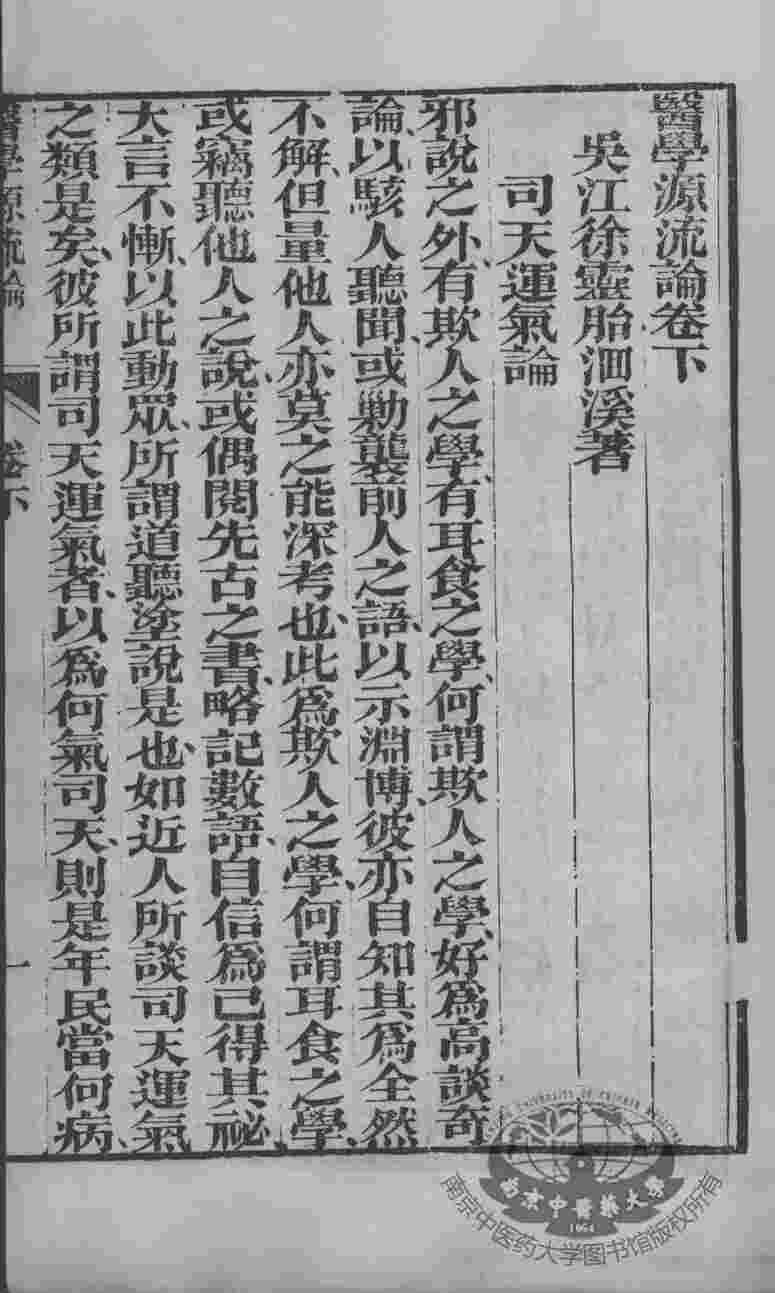 醫學源流論卷下
吳江徐靈胎洄溪著
司天運氣論
邪說之外、有欺人之學、有耳食之學、何謂欺人之學、好為高談奇
論、以駭人聽聞、或勦襲前人之語、以示淵博、彼亦自知其為全然
不解、但量他人亦莫之能深考也、此為欺人之學、何謂耳食之學、
或竊聽他人之說、或偶閱先古之書、略記數語、自信為已得其祕、
大言不慚、以此動眾、所謂道聽塗說是也、如近人所談司天運氣
之類是矣、彼所謂司天運氣者、以為何氣司天、則是年民當何病、
醫學源流論 卷下 一
南京中醫藥大學
1954
南京中医药大学图书馆版权所有